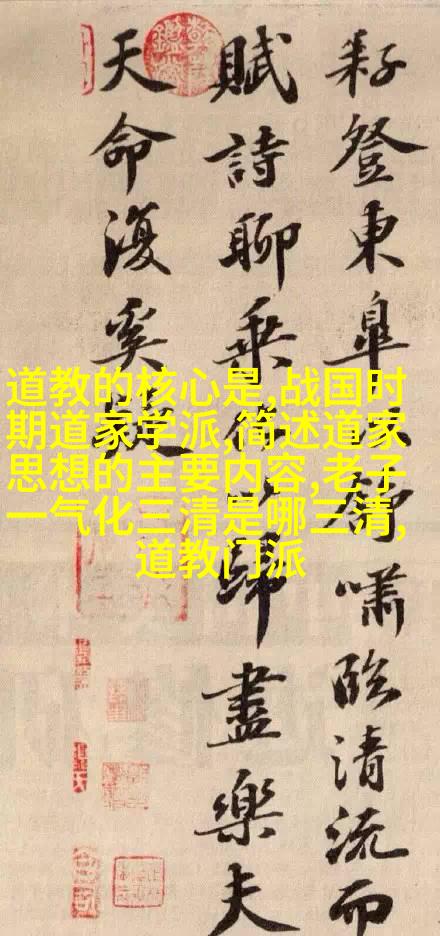 耔登東皐以舒嘯臨清流而
賦詩聊乗化以歸盡樂夫
天命復奚疑
道教的核心是,战国时
期道家学派,简述道家
思想的主要内容,老子
一气化三清是哪三清,
道教门派